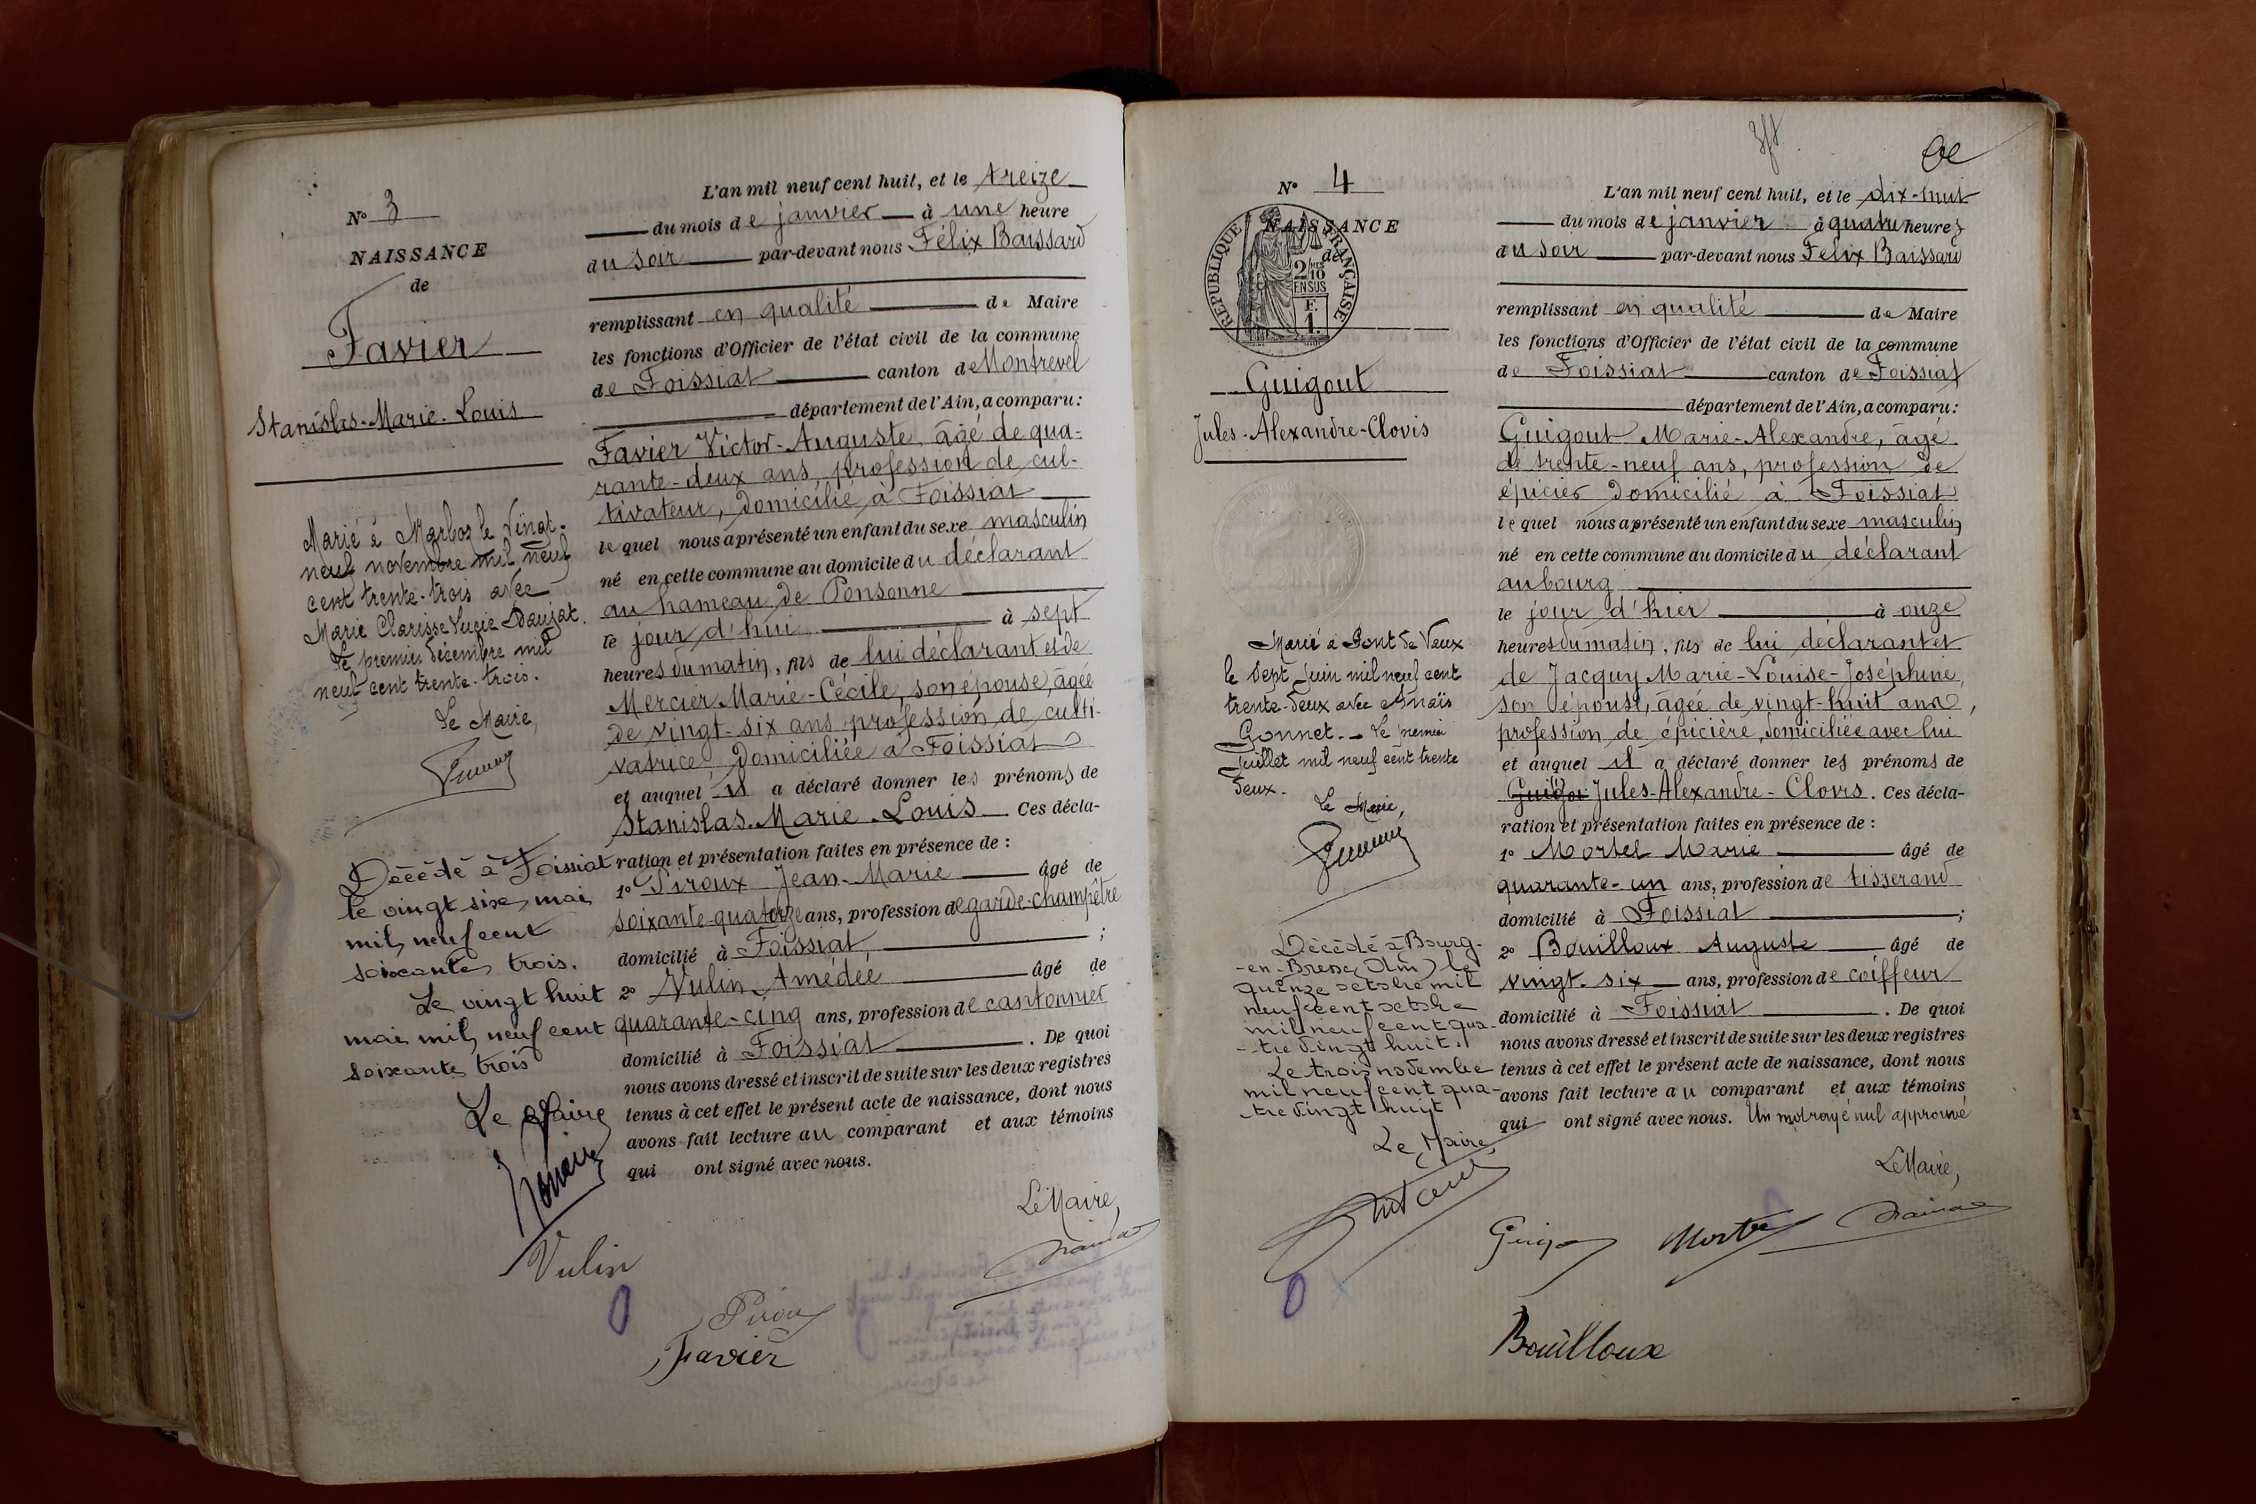 N° 3
NAISSANCE
de
Favier
Stanislas-Marie-Louis
Marié à Marboz le vingt-
neuf novembre mil neuf
cent trente-trois avec
Marie Clarisse Lucie Daujat.
Le premier décembre mil
neuf cent trente-trois.
Le Maire,
Décédé à Foissiat
le vingt six mai
mil neuf cent
soixante trois.
Le vingt huit
mai mil neuf cent
soixante trois
Le Maire
L'an mil neuf cent huit, et le treize
du mois de janvier à une heure
du soir par-devant nous Félix Baissard
remplissant en qualité de Maire
les fonctions d'Officier de l'état civil de la commune
de Foissiat canton de Montrevel
département de l'Ain, a comparu:
Favier Victor-Auguste, âgé de qua-
rante-deux ans, profession de cul-
tivateur, domicilié à Foissiat
lequel nous a présenté un enfant du sexe masculin
né en cette commune au domicile du déclarant
au hameau de Ponsonne
le jour d'hui à sept
heures du matin, fils de lui déclarant et de
Mercier Marie-Cécile, son épouse, âgée
de vingt-six ans, profession de culti-
vatrice, domiciliée à Foissiat
et auquel il a déclaré donner les prénoms de
Stanislas-Marie-Louis Ces décla-
ration et présentation faites en présence de :
1° Piroux Jean-Marie âgé de
soixante-quatorze ans, profession de garde-champêtre
domicilié à Foissiat ;
2° Vulin Amédée âgé de
quarante-cinq ans, profession de cantonnier
domicilié à Foissiat . De quoi
nous avons dressé et inscrit de suite sur les deux registres
tenus à cet effet le présent acte de naissance, dont nous
avons fait lecture au comparant et aux témoins
qui ont signé avec nous.
Le Maire,
Vulin
Piroux
Favier
N° 4
NAISSANCE
de
RÉPUBLIQUE FRANÇAISE
2/10
EN SUS
F.
1.
Guigout
Jules-Alexandre-Clovis
Marié à Pont de Vaux
le sept Juin mil neuf cent
trente-deux avec Anaïs
Gonnet. - Le premier
Juillet mil neuf cent trente
deux.
Le Maire,
Décédé à Bourg-
-en-Bresse (Ain) le
quinze octobre mil
neuf cent octobre
mil neuf cent qua-
-tre vingt huit.
Le trois novembre
mil neuf cent qua-
-tre vingt huit
Le Maire
L'an mil neuf cent huit, et le dix-huit
du mois de janvier à quatre heures
du soir par-devant nous Félix Baissard
remplissant en qualité de Maire
les fonctions d'Officier de l'état civil de la commune
de Foissiat canton de Foissiat
département de l'Ain, a comparu:
Guigout Marie-Alexandre, âgé
de trente-neuf ans, profession de
épicier domicilié à Foissiat
lequel nous a présenté un enfant du sexe masculin
né en cette commune au domicile du déclarant
au bourg
le jour d'hier à onze
heures du matin, fils de lui déclarant et
de Jacquy Marie-Louise-Joséphine,
son épouse, âgée de vingt-huit ans,
profession de épicière, domiciliée avec lui
et auquel il a déclaré donner les prénoms de
Guigou Jules-Alexandre-Clovis. Ces décla-
ration et présentation faites en présence de :
1° Mortel Marie âgé de
quarante-un ans, profession de tisserand
domicilié à Foissiat ;
2° Bouilloux Auguste âgé de
vingt-six ans, profession de coiffeur
domicilié à Foissiat . De quoi
nous avons dressé et inscrit de suite sur les deux registres
tenus à cet effet le présent acte de naissance, dont nous
avons fait lecture au comparant et aux témoins
qui ont signé avec nous. Un mot rayé nul approuvé
Le Maire,
Bouilloux